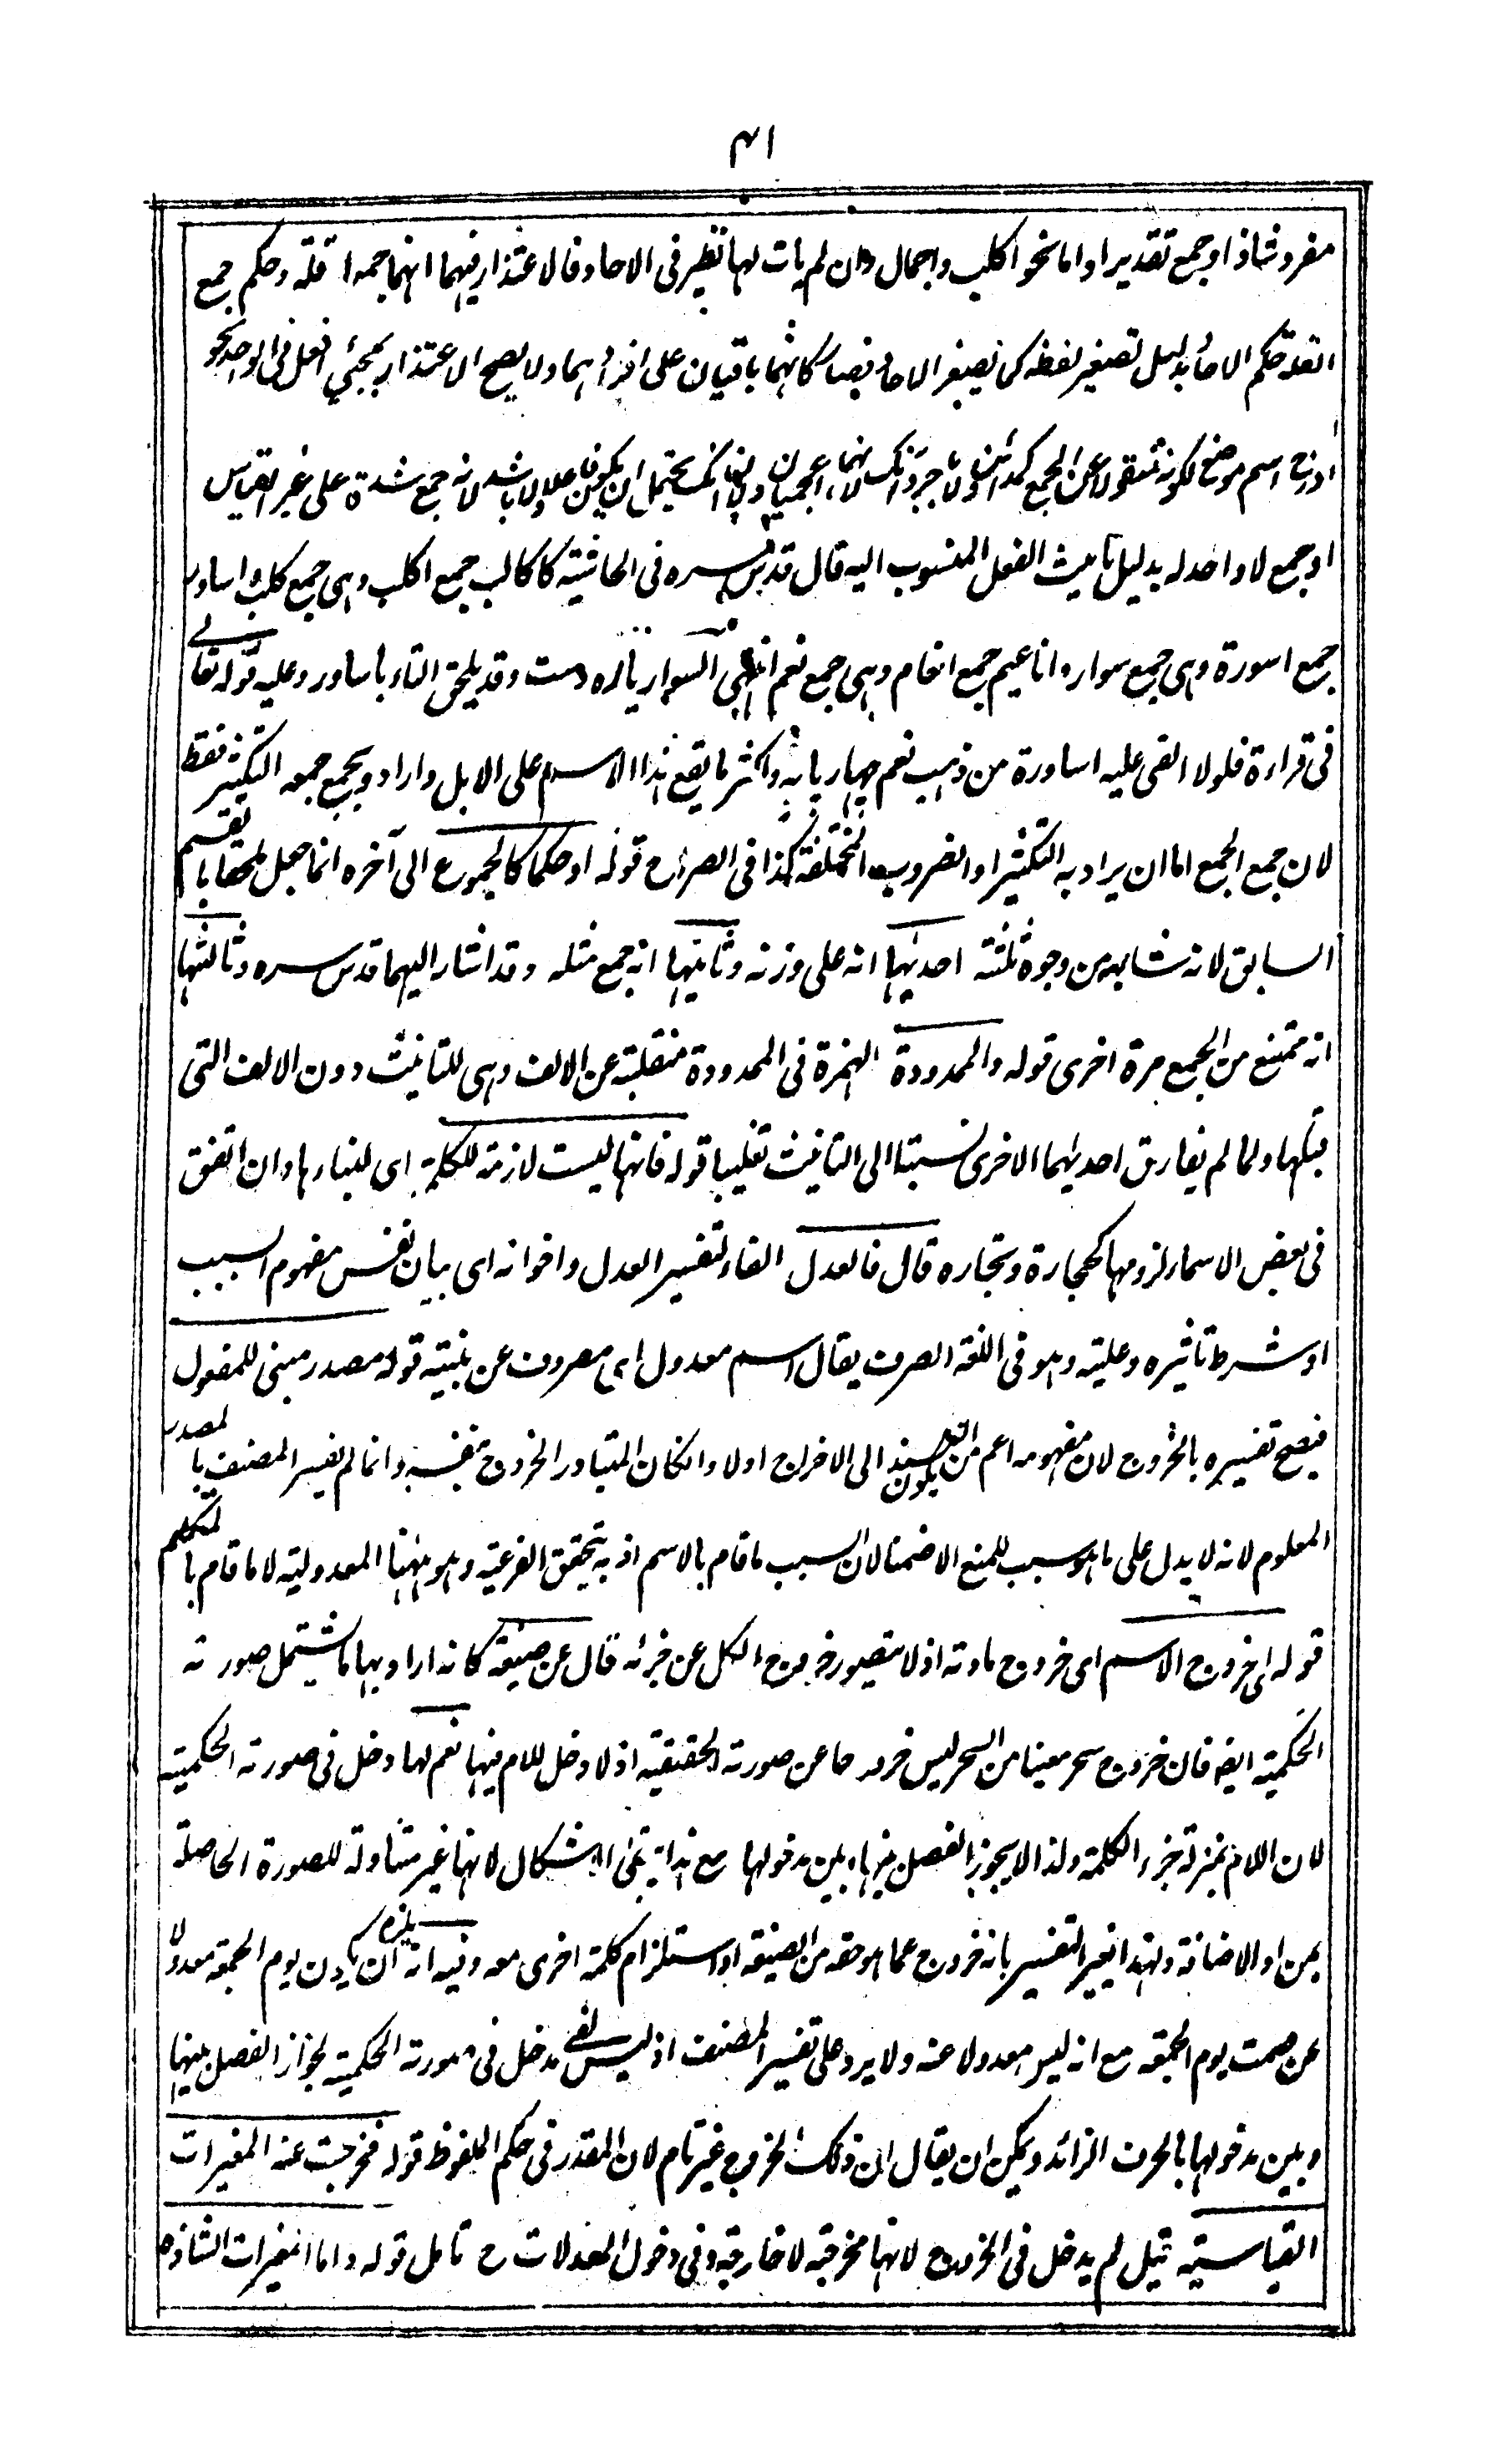 ٤١
مفرد شاذ او جمع تقديرا واما نحو اكلب واجمال وان لم يات لها نظير فى الاحاد فالاعتذار فيهما انهما جمعا قلة وحكم جمع
القلة حكم الاحاد بدليل تصغير لفظه كما تصغير الاحاد فصار كانهما باقيان على افرادهما ولا يصح الاعتذار بمجئ افعل فى الواحد نحو
اذرح اسم موضع لكونه منقولا عن الجمع كمدائن ولا بآجر وآنك لانهما اعجميان ولان آنك يحتمل ان يكون فاعلا ولا باشد لانه جمع شدة على غير القياس
او جمع لا واحد له بدليل تانيث الفعل المنسوب اليه قال قدس سره فى الحاشية كاكالب جمع اكلب وهى جمع كلب واساور
جمع اسورة وهى جمع سوار واناعيم جمع انعام وهى جمع نعم انتهى السوار ياره دست وقد يلحق التاء باساور وعليه قوله تعالى
فى قراءة فلولا القى عليه اساورة من ذهب نعم چهارپايه واكثر ما يقع هذا الاسم على الابل واراد بجمع جمعه التكثير فقط
لان جمع الجمع اما ان يراد به التكثير او الضروب المختلفة كذا فى الصراح قوله او حكما كالجموع الى آخره انما جعل ملحقا بالقسم
السابق لانه شابهه من وجوه ثلثة احديها انه على وزنه وثانيتها انه جمع مثله وقد اشار اليهما قدس سره وثالثتها
انه ممتنع من الجمع مرة اخرى قوله والممدودة الهمزة فى الممدودة منقلبة عن الالف وهى للتانيث دون الالف التى
قبلها ولما لم يفارق احديهما الاخرى نسبتا الى التانيث تغليبا قوله فانها ليست لازمة للكلمة اى لبناءها وان اتفق
فى بعض الاسماء لزومها كحجارة وتجاره قال فالعدل الفاء لتفسير العدل واخوانه اى بيان نفس مفهوم السبب
او شرط تاثيره وعليته وهو فى اللغة الصرف يقال اسم معدول اى مصروف عن بنيته قوله مصدر مبنى للمفعول
فيصح تفسيره بالخروج لان مفهومه اعم من ان يكون يسند الى الاخراج اولا وانكان المتبادر الخروج بنفسه وانما لم يفسر المصنف بالمصدر
المعلوم لانه لا يدل على ما هو سبب للمنع الا ضمنا لان السبب ما قام بالاسم اذ به يتحقق الفرعية وهو ههنا المعدولية لا ما قام بالمتكلم
قوله اى خروج الاسم اى خروج مادته اذ لا يتصور خروج الكل عن جزئه قال عن صيغته كانه اراد بها ما يشتمل صورته
الحكمية ايضا فان خروج سحر معينا من السحر ليس خروجا عن صورته الحقيقية اذ لا دخل للام فيها نعم لها دخل فى صورته الحكمية
لان اللام بمنزلة جزء الكلمة ولذا لا يجوز الفصل بينها وبين مدخولها مع هذا يبقى الاشكال لانها غير متناولة للصورة الحاصلة
بمن او الاضافة ولهذا يغير التفسير بانه خروج عما هو حقه من الصيغة او استلزام كلمة اخرى معه وفيه انه يلزم ان يكون يوم الجمعة معدولا
عن صمت يوم الجمعة مع انه ليس معدولا عنه ولا يرد على تفسير المصنف اذ ليس لفى مدخل فى صورته الحكمية لجواز الفصل بينها
وبين مدخولها بالحرف الزائد ويمكن ان يقال ان ذلك الخروج غير تام لان المقدر فى حكم الملفوظ قوله فخرجت عنه المغيرات
القياسية قيل لم يدخل فى الخروج لانها مخرجة لا خارجة وفى دخول المعدلات ح تامل قوله واما المغيرات الشاذة